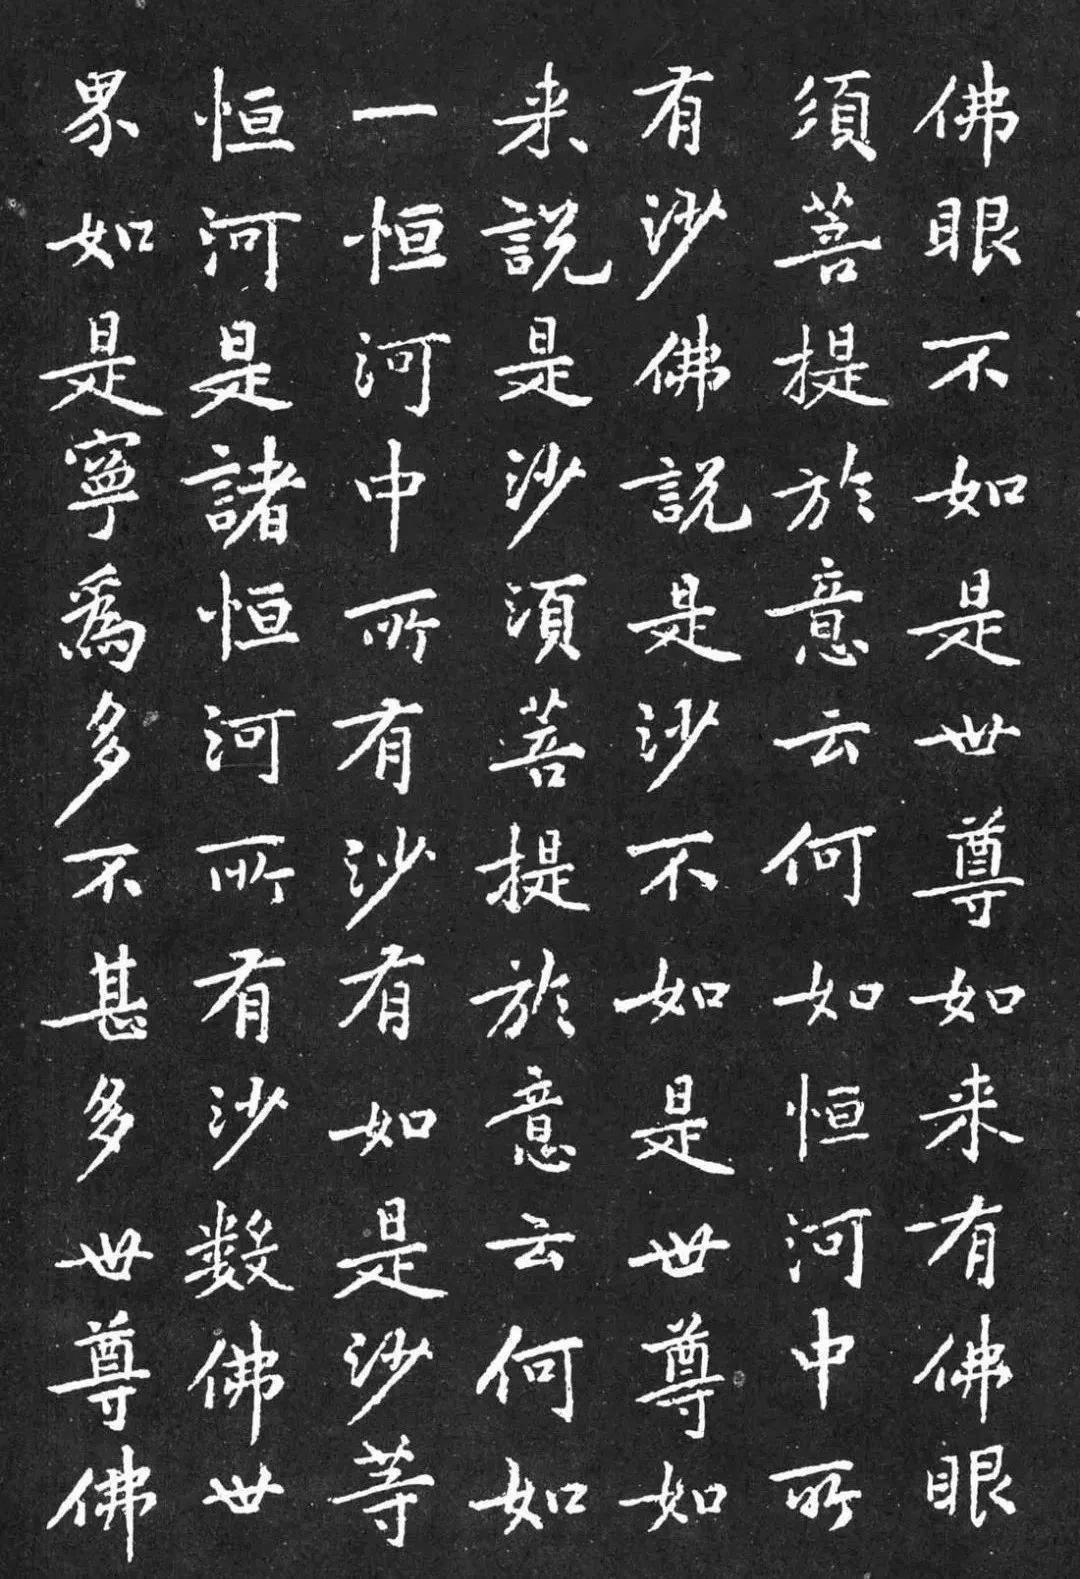 佛眼不如是世尊如来有佛眼
須菩提於意云何如恒河中所
有沙佛説是沙不如是世尊如
来説是沙須菩提於意云何如
一恒河中所有沙有如是沙等
恒河是諸恒河所有沙數佛世
界如是寧爲多不甚多世尊佛